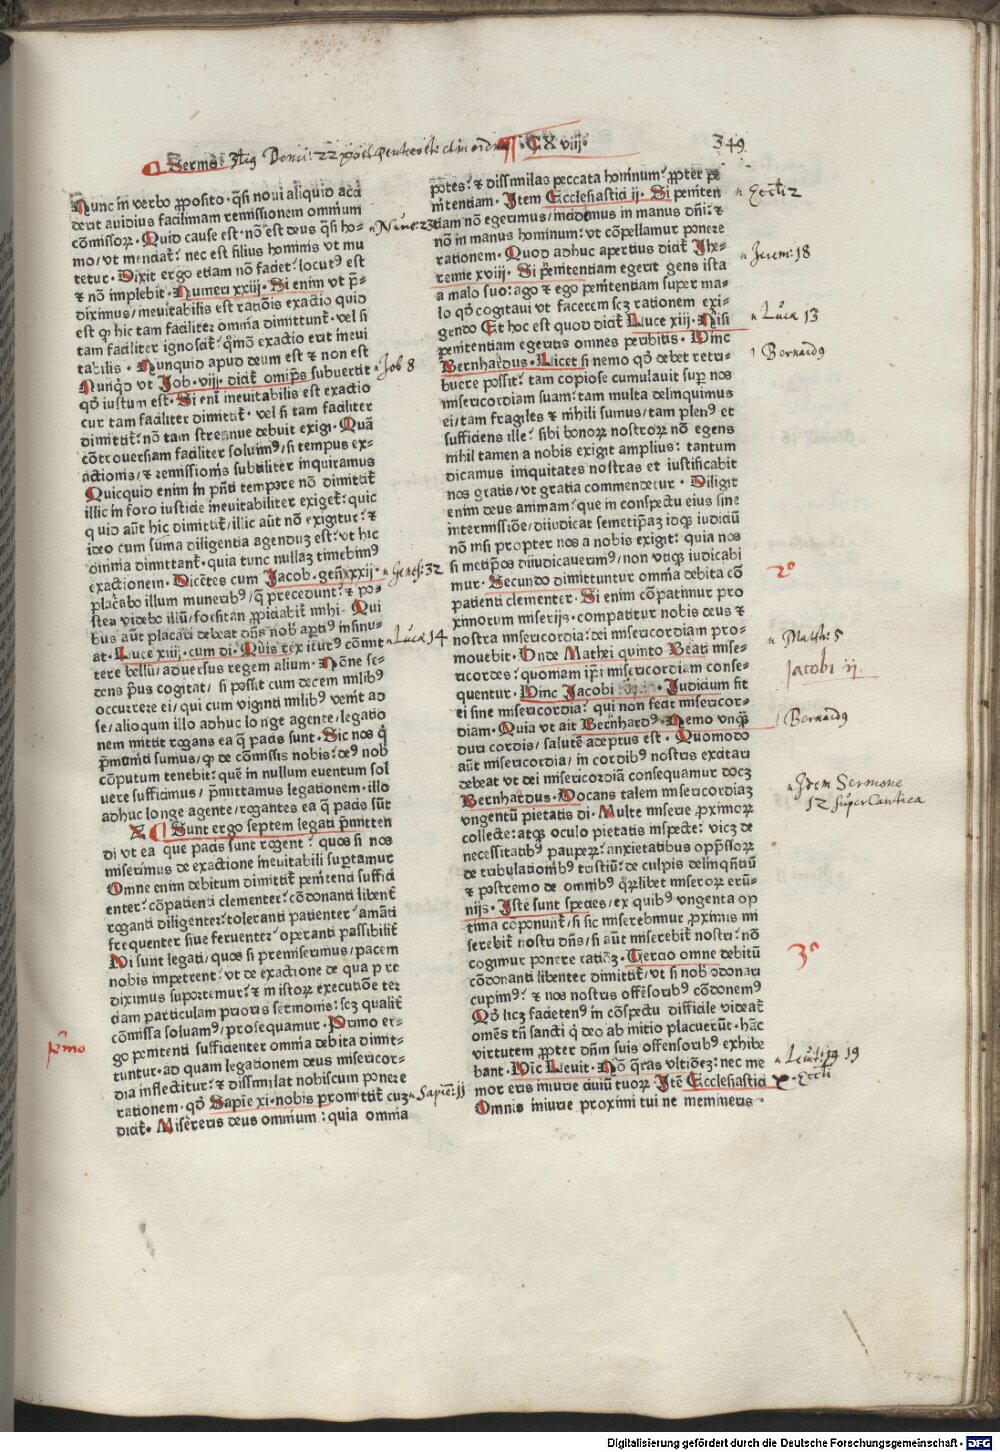 Sermo 3tiꝰ Domi: 22 post pentecoste in ordine CXviij. 349
Nunc in verbo proposito. q̃si noui aliquid acci
derit auidius facilimam remissionem omnium
cõmissorꝝ. Quid cause est. nõ est deus q̃si ho-
mo/ vt menciat᷑. nec est filius hominis vt mu
tetur. Dixit ergo etiam nõ faciet? locutꝰ est
⁊ nõ implebit. Numeri xxiij. Si enim vt p̃-
diximus/ ineuitabilis est ratiõis exactio quid
est ꝙ hic tam faciliter omnia dimittunt᷑. vel si
tam faciliter ignoscat᷑. q̃mõ exactio erit ineui
tabilis. Nunquid apud deum est ⁊ non est
Nunqd̃ vt Job. viij. dicit᷑ omip̃s subuertit
qd̃ iustum est. Si eni᷑ ineuitabilis est exactio
cur tam faciliter dimittit᷑. vel si tam faciliter
dimittit᷑. nõ tam strennue debuit exigi. Quã
cõtrouersiam faciliter soluimꝰ/ si tempus ex-
actionis/ ⁊ remissionis subtiliter inquiramus
Quicquid enim in p̃nti tempore nõ dimittit᷑
illic in foro iusticie ineuitabiliter exiget᷑. quic
q uid aũt hic dimittit᷑/ illic aũt nõ exigitur. ⁊
ideo cum sũma diligentia agenduꝫ est. vt hic
omnia dimittant᷑. quia tunc nullaꝫ timebimꝰ
exactionem. Dicẽtes cum Jacob. geñ. xxxij.
placabo illum muneribꝰ/ q̃ precedunt. ⁊ po-
stea videbo illũ/ forsitan ꝓpiciabit᷑ mihi. Qui
bus aũt placari debeat dñs nobis aptiꝰ insinu-
at. Luce xiiij. cum di. Quis rex iturꝰ cõmit
tere bellũ/ aduersus regem alium. Nõne se-
dens p̃us cogitat/ si possit cum decem milibꝰ
occurrere ei/ qui cum viginti milibꝰ venit ad
se/ alioquin illo adhuc lo nge agente/ legatio
nem mittit rogans ea q̃ pacis sunt. Sic nos q̃
p̃muniti sumus/ ꝙ de cõmissis nobis. deꝰ nob
cõputum tenebit. quẽ in nullum euentum sol
uere sufficimus/ p̃mittamus legationem. illo
adhuc longe agente/ rogantes ea q̃ pacis sũt
Sunt ergo septem legati p̃mitten
di vt ea que pacis sunt rogent. quos si nos
miserimus de exactione ineuitabili suportamur
Omne enim debitum dimittit᷑ penitenti suffici
enter. cõpatienti clementer. cõdonanti libent᷑
roganti diligenter. toleranti patienter. amãti
frequenter siue feruenter. operanti passibilit᷑
Hi sunt legati/ quos si premiserimus/ pacem
nobis impetrent. vt de exactione de qua p re
diximus suportemur. ⁊ in istorꝝ executiõe ter
ciam particulam prioris sermonis. scꝫ qualit᷑
cõmissa soluamꝰ/ prosequamur. Primo er-
go penitenti sufficienter omnia debita dimit-
tuntur. ad quam legationem deus misericor-
dia inflectitur. ⁊ dissimilat nobiscum ponere
rationem. qd̃ Sapie xi. nobis promittit᷑ cuꝫ
dicit᷑. Misereris deus omnium: quia omnia
potes. ⁊ dissimilas peccata hominum. ꝓpter pe
nitentiam. Item Ecclesiastici ij. Si peniten
tiam nõ egerimus/ incidemus in manus dñi. ⁊
nõ in manus hominum. vt cõpellamur ponere
rationem. Quod adhuc apertius dicit᷑ Jhe-
remie xviij. Si penitentiam egerit gens ista
a malo suo. ago ⁊ ego penitentiam super ma-
lo qd̃ cogitaui vt facerem scꝫ rationem exi-
gendo Et hoc est quod dicit᷑ Luce xiij. Nisi
penitentiam egeritis omnes peribitis. Hinc
Bernhardus. Licet si nemo qd̃ debet retri-
buere possit. tam copiose cumulauit suꝑ nos
misericordiam suam. tam multa delinquimus
ei/ tam fragiles ⁊ nihili sumus/ tam plenꝰ et
sufficiens ille. sibi bonorꝝ nostrorꝝ nõ egens
nihil tamen a nobis exigit amplius. tantum
dicamus iniquitates nostras et iustificabit
nos gratis/ vt gratia commendetur. Diligit
enim deus animam. que in conspectu eius sine
intermissiõe/ diiudicat semetip̃aꝫ idqꝫ iudiciũ
nõ nisi propter nos a nobis exigit. quia nos
si metip̃os diiudicauerimꝰ/ non vtiqꝫ iudicabi
mur. Secundo dimittuntur omnia debita cõ
patienti clementer. Si enim cõpatimur pro
ximorum miserijs. compatitur nobis deus ⁊
nostra misericordia. dei misericordiam pro-
mouebit. Onde Mathei quinto Beati mise-
ricordes. quoniam ip̃i misericordiam conse-
quentur. Hinc Jacobi ij. Judicium fit
ei sine misericordia. qui non fecit misericor-
diam. Quia vt ait Bernhardꝰ. Nemo vnqꝫ
duri cordis/ salutẽ adeptus est. Quomodo
aũt misericordia/ in cordibꝰ nostris excitari
debeat vt dei misericordiã consequamur docꝫ
Bernhardus. Vocans talem misericordiaꝫ
vngentũ pietatis di. Multe miserie ꝓximorꝝ
collecte. atqꝫ oculo pietatis inspecte. vicꝫ de
necessitatibꝰ pauperꝝ. anxietatibus opp̃ssorꝝ
de tribulationibꝰ tristiũ. de culpis delinq̃ntiũ
⁊ postremo de omnibꝰ q̃rũlibet miserorꝝ erũ-
nijs. Iste sunt species/ ex quibꝰ vngenta op
tima cõponunt᷑/ si sic miserebimur ꝓximis mi
serebit᷑ nostri dñs/ si aũt miserebit᷑ nostri. nõ
cogimur ponere ratiõeꝫ. Tercio omne debitũ
cõdonanti libenter dimittit᷑/ vt si nobis cõdonari
cupimꝰ. ⁊ nos nostris offẽsoribꝰ cõdonemꝰ
Qd̃ licꝫ facietenꝰ in cõspectu difficile videat᷑
omẽs tñ sancti q̃ deo ab initio placuerũt. hãc
virtutem ꝓpter dñm suis offensoribꝰ exhibe
bant. Hic Leuit. Nõ q̃ras vltiõeꝫ. nec me
mor eris iniurie ciuiũ tuorꝝ Itẽ Ecclesiastici x.
Omnis iniurie proximi tui ne memineris.
Nume: 23
Job 8
Genes: 32
Luca 14
Sapie: 11
primo
Eccli 2
Jerem: 18
Luca 13
Bernardꝰ
2º
Math: 5
Jacobi ij
Bernardꝰ
Idem Sermone
12 super Cantica
3º
Leuit: 19 19
Eccli
Digitalisierung gefördert durch die Deutsche Forschungsgemeinschaft - DFG